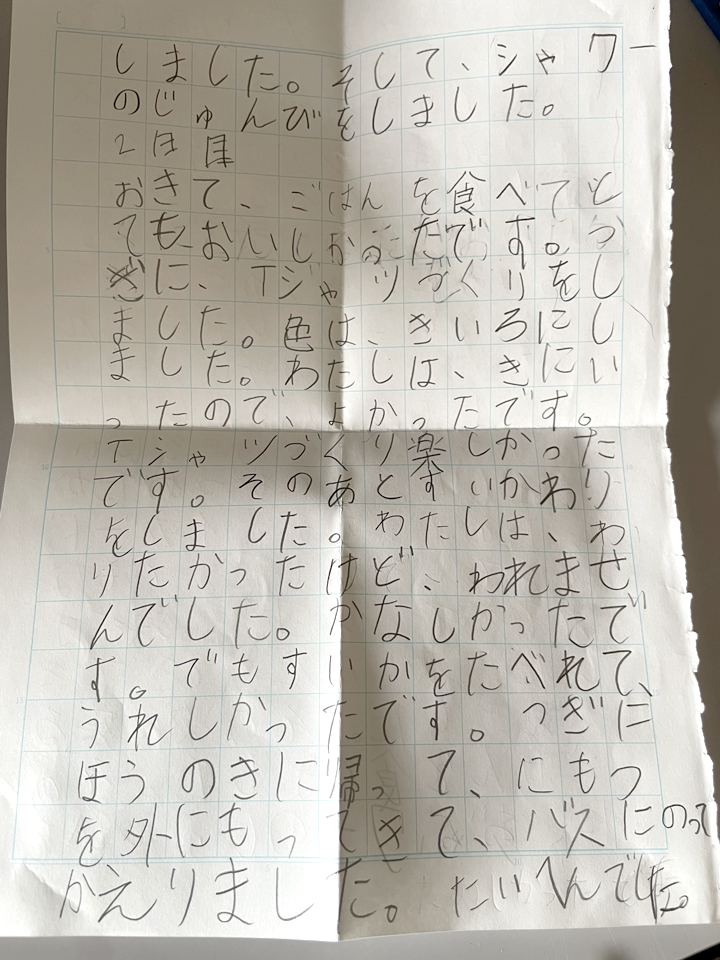 しました。そして、シャワー
のじゅんびをしました。
2日目
おきて、ごはんを食べてと
てもおいしかったです。つ
ぎに、Tシャツづくりをし
ました。色は、きいろにし
ました。わたしは、きにい
ったので、よかったです。
Tシャツづくり楽しかった
です。そのあとすいかわり
をしました。わたしは、わ
りたかったけど、われませ
んでした。かなしかったで
す。でもすいかをたべれて、
うれしかったです。つぎに
ほうのきに帰って、にもつ
を外にもってきて、バスにのって
かえりました。たいへんでした。